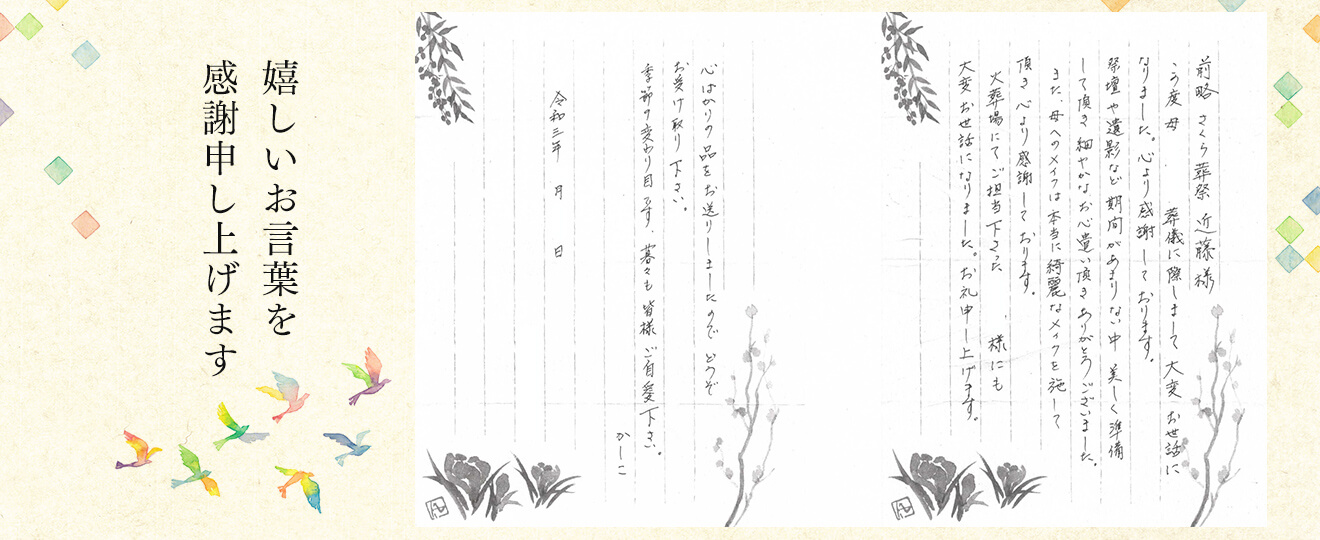 嬉しいお言葉を
感謝申し上げます
前略 さくら葬祭 近藤様
この度母 葬儀に際しまして大変お世話に
なりました。心より感謝しております。
祭壇や遺影など期間があまりない中 美しく準備
して頂き細やかなお心遣い頂きありがとうございました。
また、母へのメイクは本当に綺麗なメイクを施して
頂き心より感謝しております。
火葬場にてご担当下さった 様にも
大変お世話になりました。お礼申し上げます。
心ばかりの品をお送りしましたので どうぞ
お受け取り下さい。
季節の変わり目です 暮々も皆様ご自愛下さい。
かしこ
令和三年 月 日